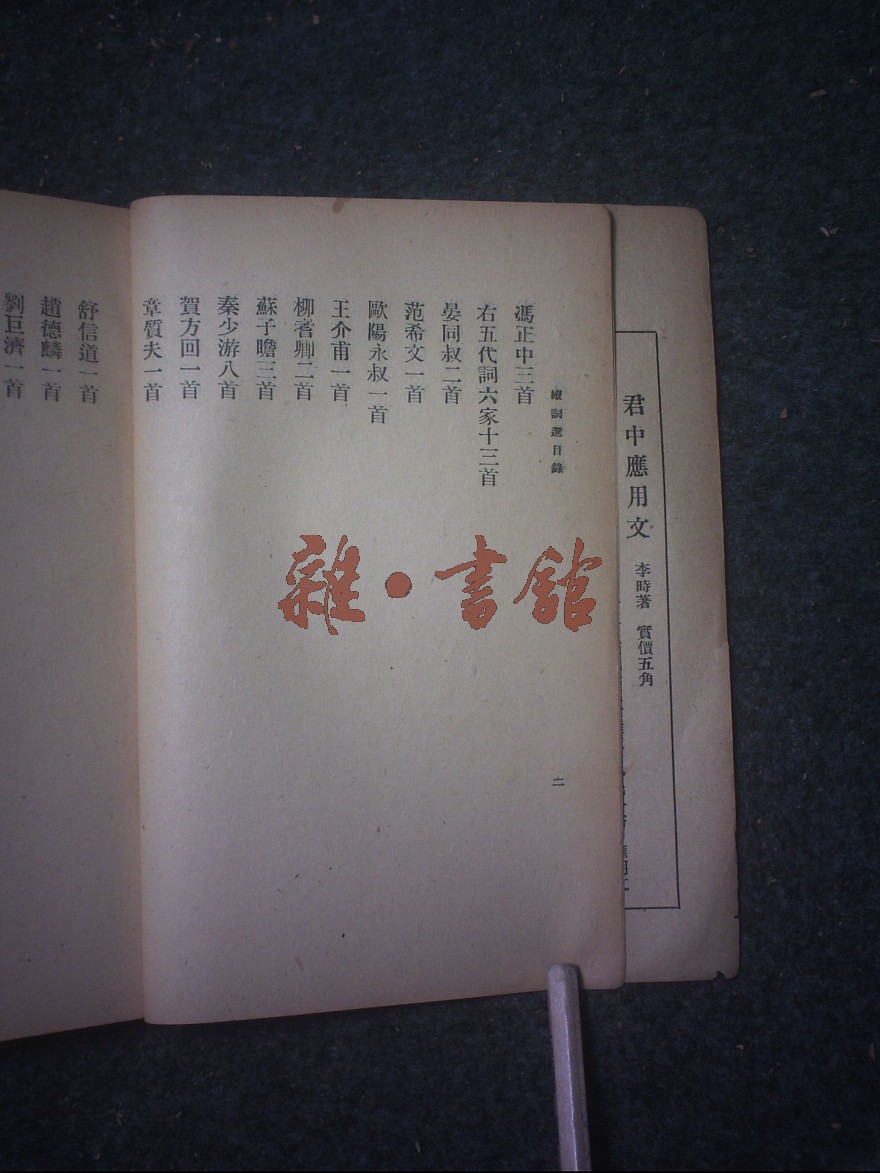 君中應用文 李時著 實價五角
續詞選目錄
二
馮正中三首
右五代詞六家十三首
晏同叔二首
范希文一首
歐陽永叔一首
王介甫一首
柳耆卿二首
蘇子瞻三首
秦少游八首
賀方回一首
章質夫一首
舒信道一首
趙德麟一首
劉巨濟一首
雜·書館